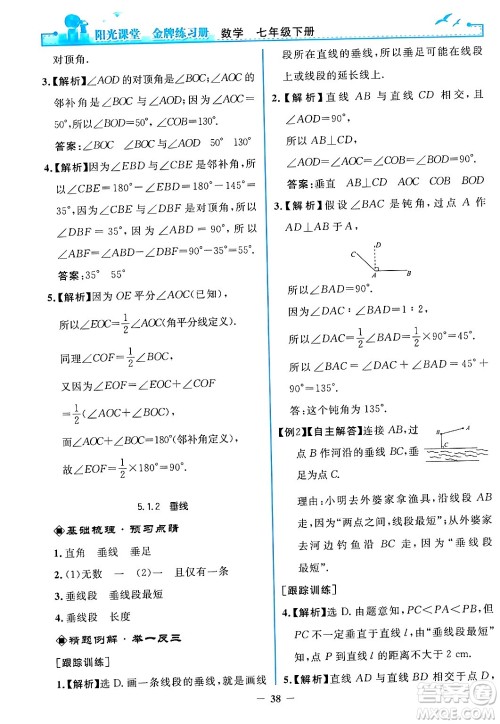 阳光课堂 金牌练习册 数学 七年级下册
对顶角.
3.【解析】∠AOD 的对顶角是∠BOC,∠AOC 的
邻补角是∠BOC 与∠AOD,因为∠AOC=
50°,所以∠BOD=50°,∠COB=130°.
答案:∠BOC ∠BOC 与∠AOD 50° 130°
4.【解析】因为∠CBE 与∠EBD 是邻补角,所以
∠CBE=180°-∠EBD=180°-145°=
35°,因为∠CBE 与∠DBF 是对顶角,所以
∠DBF=35°,∠ABF=90°-35°=55°.
答案:35° 55°
5.【解析】因为 OE 平分∠AOC(已知),
所以∠EOC=1/2∠AOC(角平分线定义).
同理∠COF=1/2∠BOC,
又因为∠EOF=∠EOC+∠COF,
所以∠EOF=1/2∠AOC+1/2∠BOC
=1/2(∠AOC+∠BOC)
=1/2×180°=90°.
5.1.2 垂线
基础梳理·预习点睛
1.直角 垂线 垂足
2.(1)无数 (2)一 一 有且只有一
3.垂线段 垂线段
4.垂线段 长度
精题例解·举一反三
[跟踪训练]
1.【解析】选 D.画一条线段的垂线,就是画线段
所在的直线的垂线,垂足可在线段上,也可在
线段的延长线上.
2.【解析】直线 AB 与直线 CD 相交,且
∠AOD=90°,
所以∠BOD=∠BOC=∠AOC=90°.
答案:垂直 ⊥ AOC COB BOD
3.【解析】假设∠BAC 是钝角,过点 A 作
AD⊥AB 于 A,
D
C
A
B
则∠BAD=90°,
因为∠DAC∶∠BAD=1∶2,
所以∠DAC=1/2∠BAD=1/2×90°=45°,
所以∠BAC=∠BAD+∠DAC=90°+45°
=135°.
答:这个钝角为 135°.
【例2】【自主解答】连接 AB,过
点 B 作河沿的垂线,垂线段
是 BC.
B
A
C
理由:小明去外婆家拿渔具,沿线段 AB 走,
因为“两点之间,线段最短”;小明从外婆家
去河边钓鱼沿线段 BC 走,因为“垂线段
最短”.
[跟踪训练]
4.【解析】选 D.由题意知,PC<PA<PB,只有
当 PC 垂直于直线 l 时,点 P 到直线 l 的距离
才等于 2 cm.
5.【解析】直线 AD 与直线 BD 相交于点 D,
38